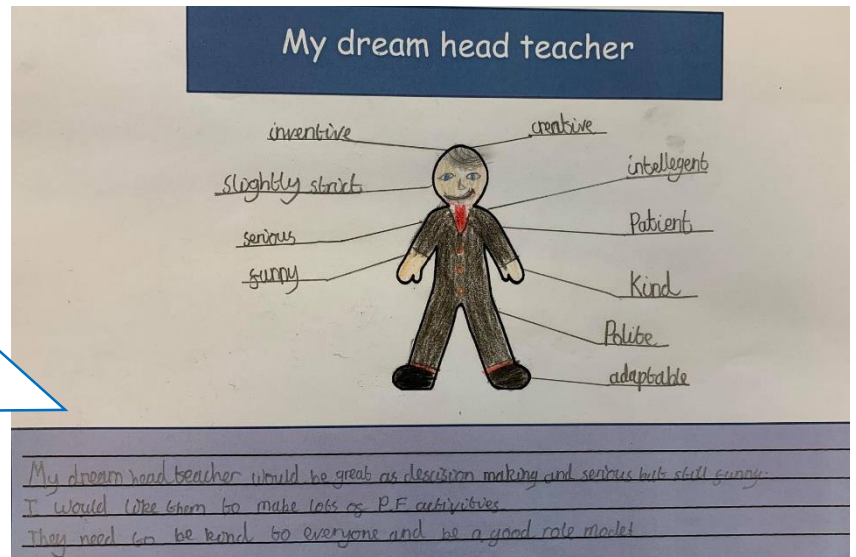 My dream head teacher
inventive
creative
slightly strict
intellegent
serious
Patient
funny
Kind
Polite
adaptable
My dream head teacher would be great as descision making and serious but still funny.
I would like them to make lots of P.E activitves
They need to be kind to everyone and be a good role model